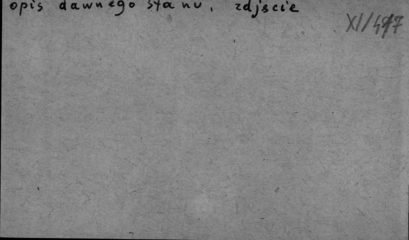 opis dawnego stanu, zdjście
XI/497